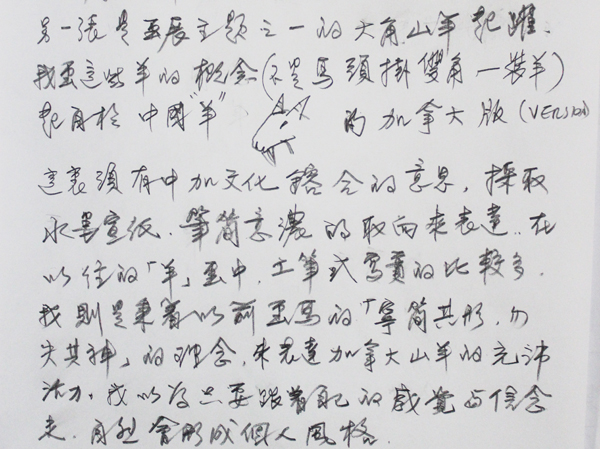 另一張是畫展主題之一的大角山羊起躍.
我畫這些羊的概念(不是馬頭掛雙角一裝羊)
起自於中國"羊" 的加拿大版(VERSION)
這裏頭有中加文化鎔合的意思, 採取
水墨宣紙.筆簡意濃的取向來表達..在
以往的「羊」畫中, 工筆式寫實的比較多.
我則是秉着以前畫馬的「寧簡其形, 勿
失其神」的理念, 來表達加拿大山羊的充沛
活力. 我以為只要跟着自己的感覺与信念
走. 自然會形成個人風格.